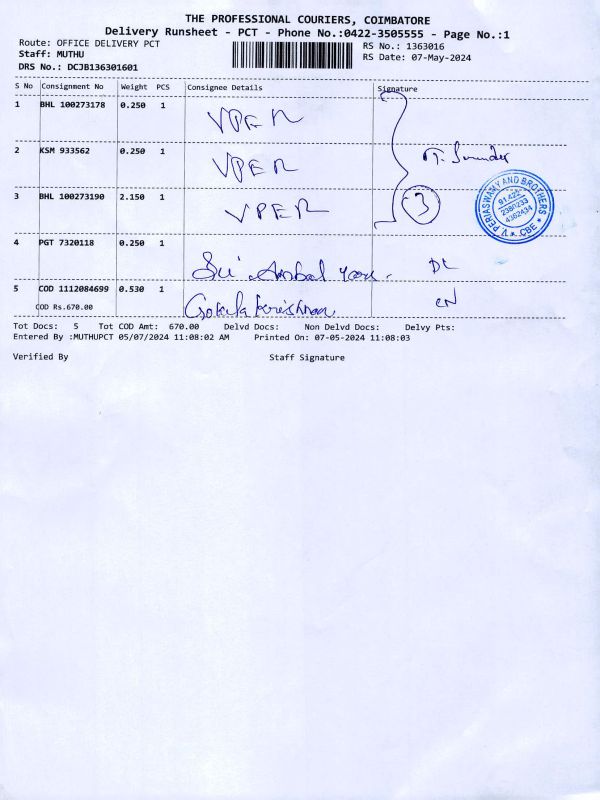 THE PROFESSIONAL COURIERS, COIMBATORE
Delivery Runsheet - PCT - Phone No.:0422-3505555 - Page No.:1
Route: OFFICE DELIVERY PCT
RS No.: 1363016
Staff: MUTHU
RS Date: 07-May-2024
DRS No.: DCJB136301601
S No Consignment No Weight PCS Consignee Details Signature
1 BHL 100273178 0.250 1 VPER
2 KSM 933562 0.250 1 VPER
3 BHL 100273190 2.150 1 VPER 3
V. PERIASWAMY AND BROTHERS
★ CBE ★
4 PGT 7320118 0.250 1 Sri DL
5 COD 1112084699 0.530 1 Gokila Krishnan
COD Rs.670.00
Tot Docs: 5 Tot COD Amt: 670.00 Delvd Docs: Non Delvd Docs: Delvy Pts:
Entered By :MUTHUPCT 05/07/2024 11:08:02 AM Printed On: 07-05-2024 11:08:03
Verified By Staff Signature